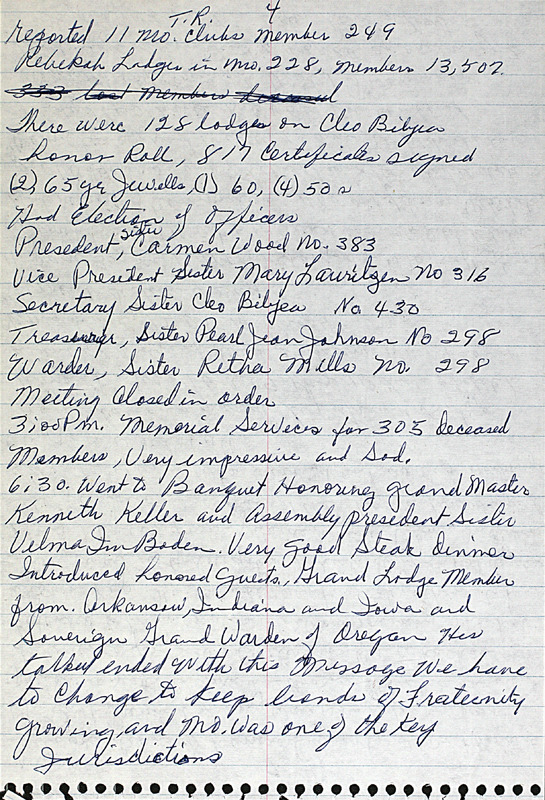 4
T.R.
reported 11 mo. clubs member 249
Rebekah Lodges in Mo. 228, members 13,507
333 lost Members deceased
There were 128 lodges on Cleo Bilyea
honor Roll, 817 Certificates signed
(2) 65 yr Jewells, (1) 60, (4) 50s
Had Election of Officers
Presedent, Sister Carmen Wood No. 383
Vice President Sister Mary Lauritzen No 316
Secretary Sister Cleo Bilyea No 430
Treasurer, Sister Pearl Jean Johnson No 298
Warder, Sister Retha Mills No. 298
Meeting Closed in order
3:00 Pm. Memorial Services for 305 deceased
Members, Very impressive and Sad.
6:30. Went to Banquet Honoring grand Master
Kenneth Keller and Assembly president Sister
Velma Im Boden. Very good Steak dinner
Introduced honored Guests, Grand Lodge Member
from. Arkansaw, Indiana and Iowa and
Soverign Grand Warden of Oregon His
talked ended with this Message We have
to Change to keep bonds of Fraternity
growing, and Mo. was one of the Key
Jurisdictions